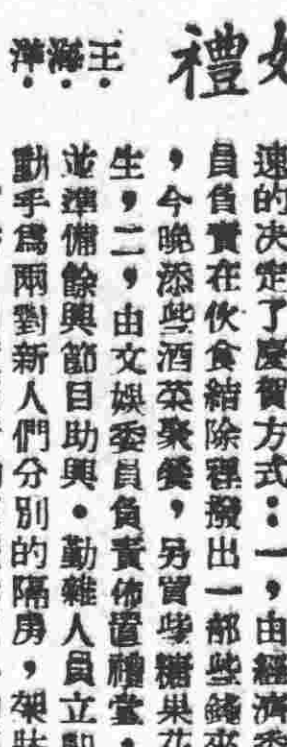 禮
王海澤
速的决定了慶賀方式：一，由經濟
員負責在伙食結除裡撥出一部些錢來
，今晚添些酒菜聚餐，另買些糖果花
生，二，由文娛委員負責佈置禮堂，
並準備餘興節目助興．勤雜人員立即
動手爲兩對新人們分別的隔房，架牀